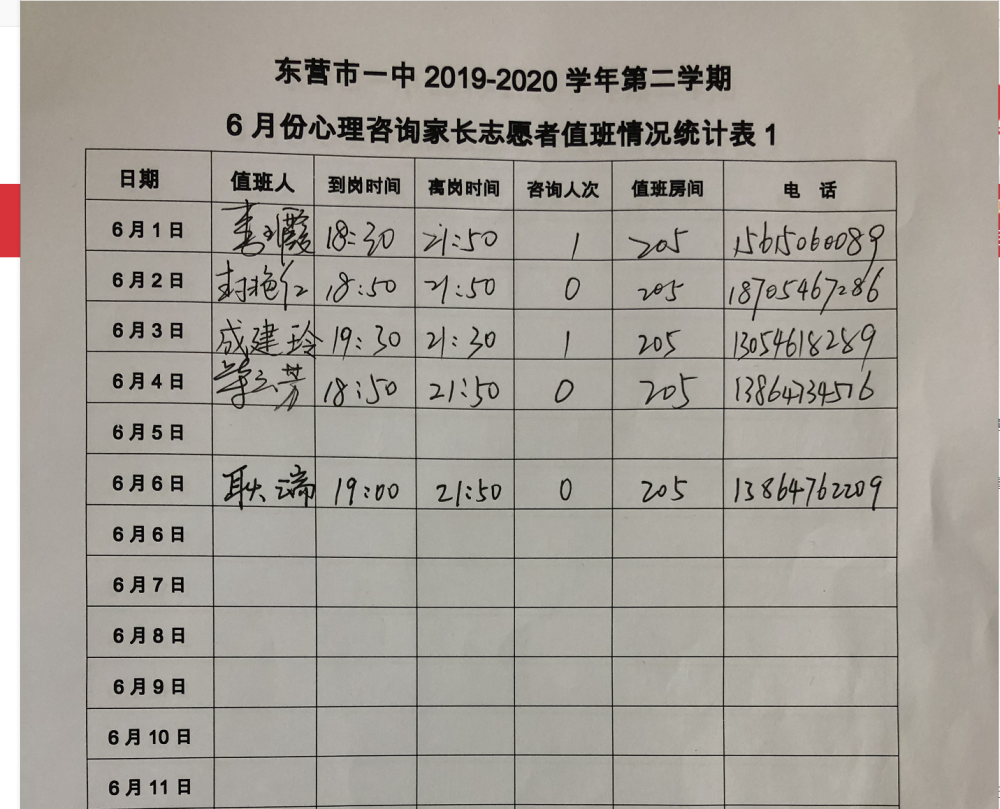 东营市一中 2019-2020 学年第二学期
6 月份心理咨询家长志愿者值班情况统计表 1
日期 值班人 到岗时间 离岗时间 咨询人次 值班房间 电 话
6 月 1 日 18:30 21:50 1 205 15615060089
6 月 2 日 18:50 21:50 0 205 18705467286
6 月 3 日 成建玲 19:30 21:30 1 205 13054618289
6 月 4 日 18:50 21:50 0 205 13864734516
6 月 5 日
6 月 6 日 耿瑞 19:00 21:50 0 205 13864762209
6 月 6 日
6 月 7 日
6 月 8 日
6 月 9 日
6 月 10 日
6 月 11 日